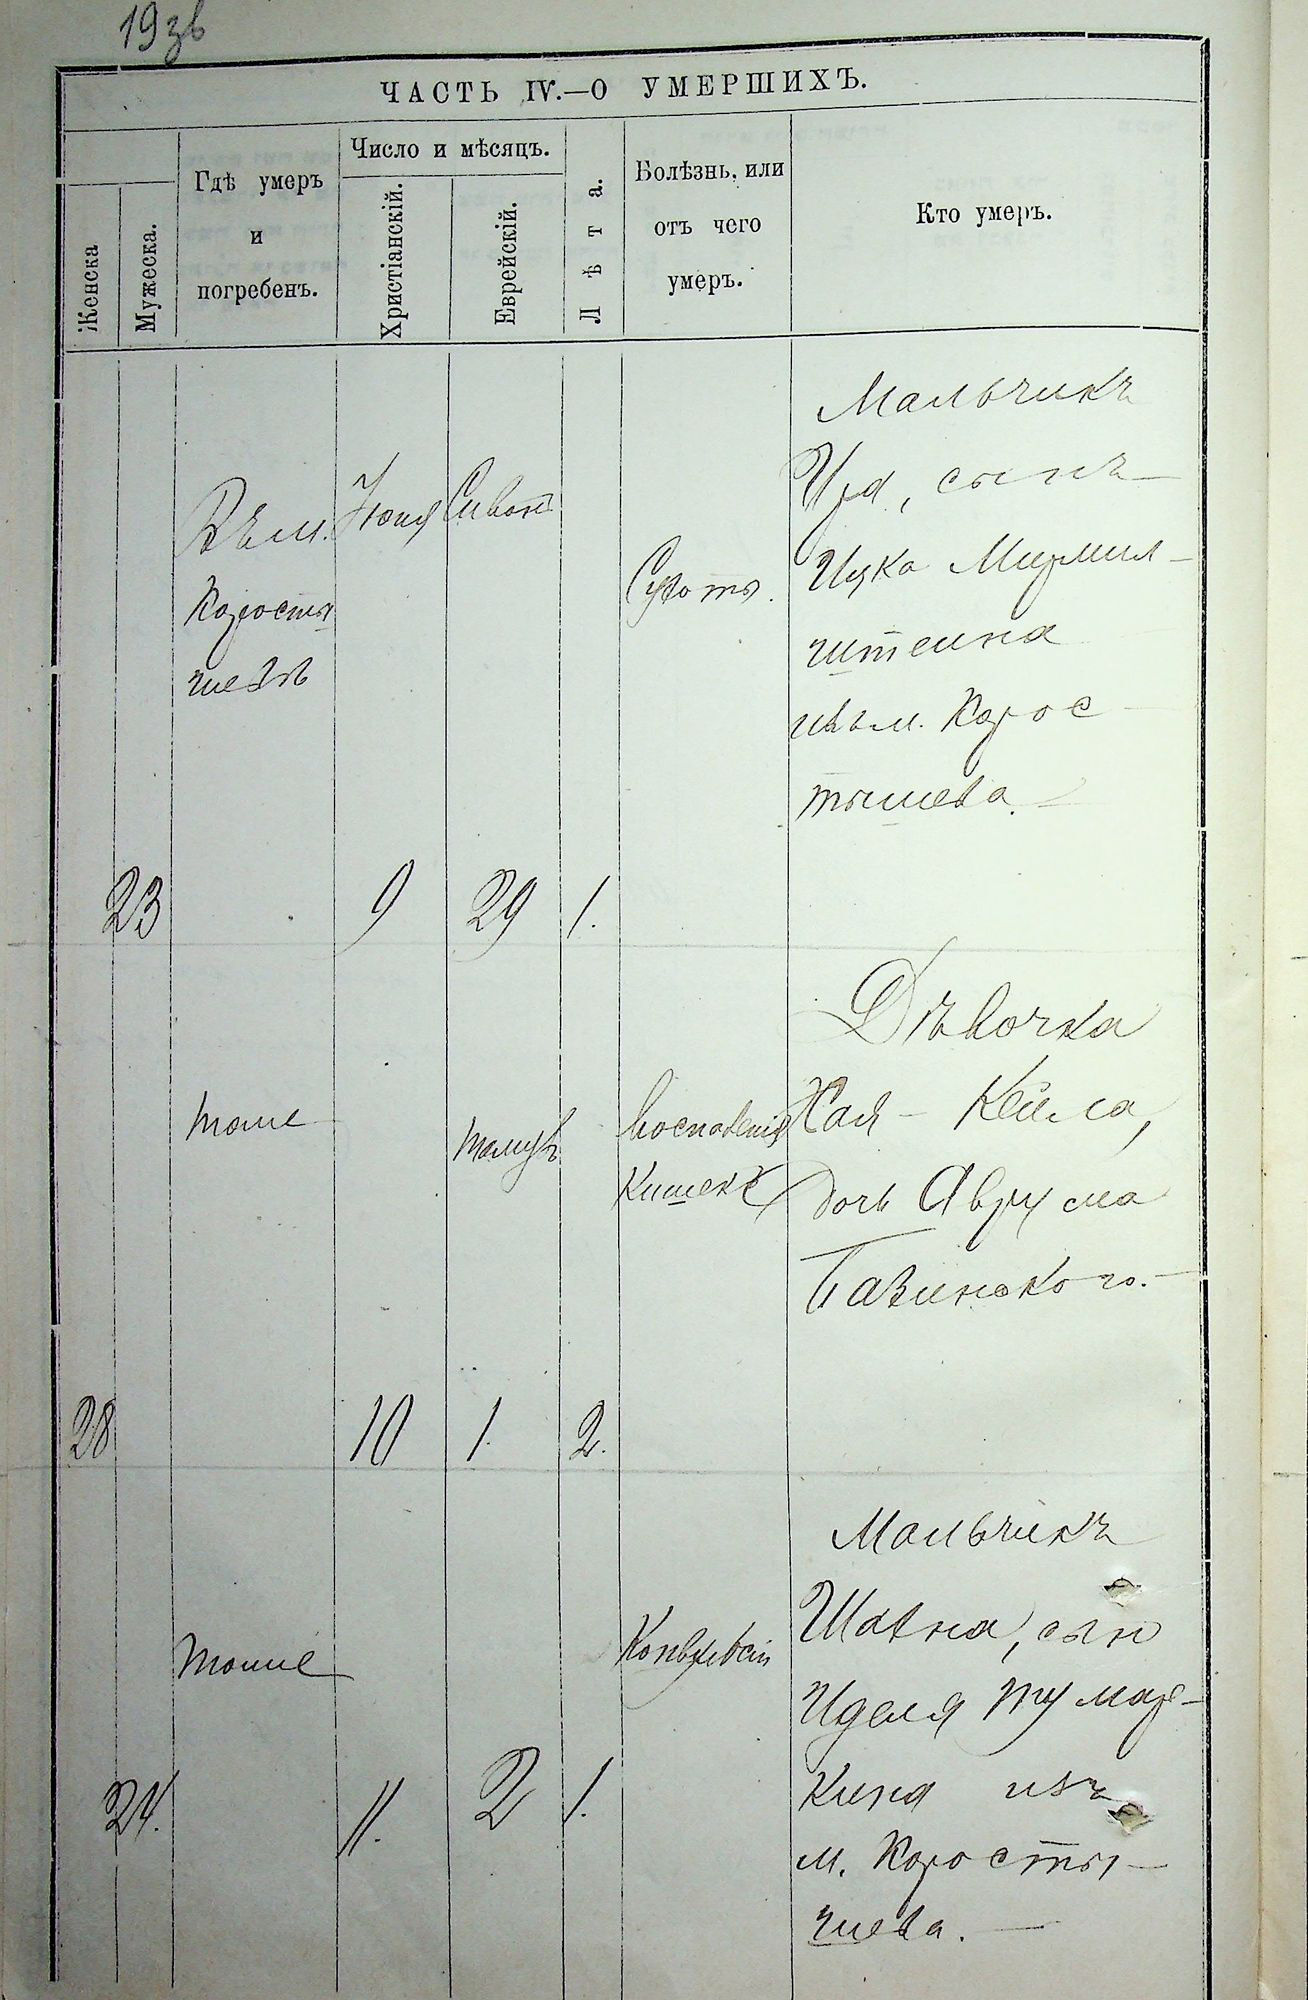 19зв
ЧАСТЬ IV.—О УМЕРШИХЪ.
Женска
Мужеска.
Гдѣ умеръ
и
погребенъ.
Число и мѣсяцъ.
Христіанскій.
Еврейскій.
Лѣта.
Болѣзнь, или
отъ чего
умеръ.
Кто умеръ.
Въ м.
Коросты
шевѣ
Іюня
Сиванъ
Сухоты.
Мальчикъ
Ура, сынъ
Ицка Мирмил-
штейна
изъ м. Корос
тышева.
23
9
29
1.
тоже
тамузъ
Воспаленія
Кишекъ
Дѣвочка
Хая - Кейла,
дочь Аврума
28
10
1.
2.
тоже
Конвульсіи
Мальчикъ
Шавна, сын
Иделя Тумар-
кина изъ
м. Коросты-
шева.
24.
11.
2
1.